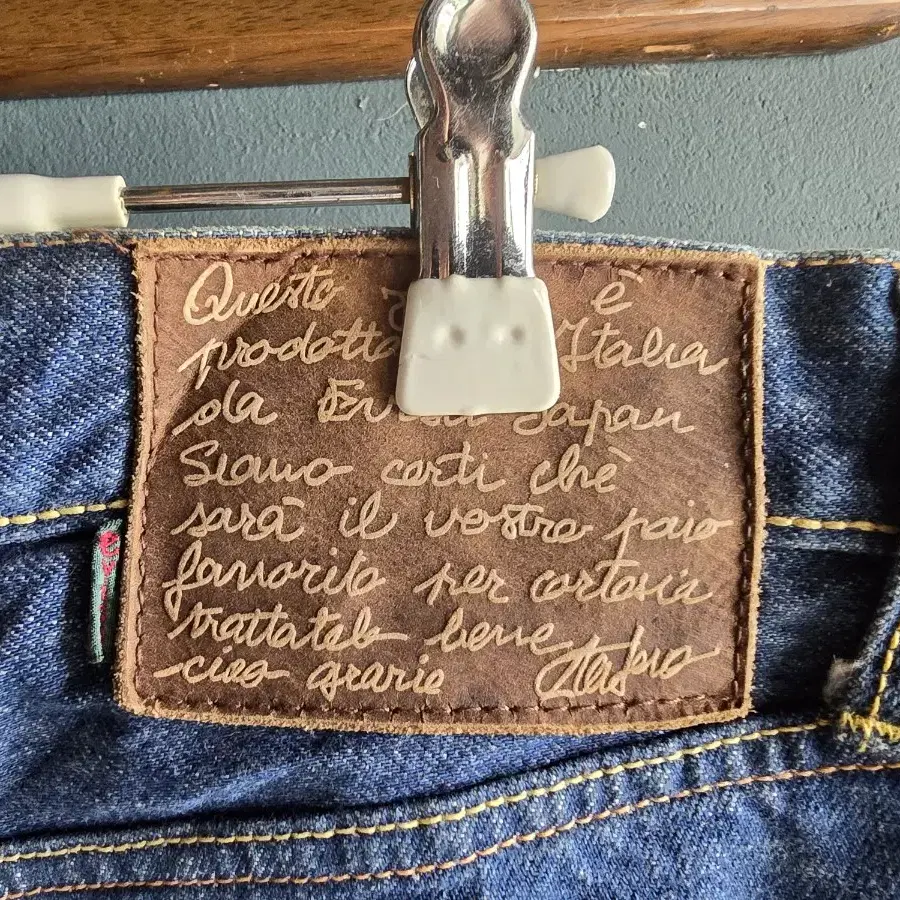 Questo è
prodotto Italia
da Japan
Siamo certi chè
sarà il vostre paio
favvorito per cortesia
trattatelo bene
ciao grazie